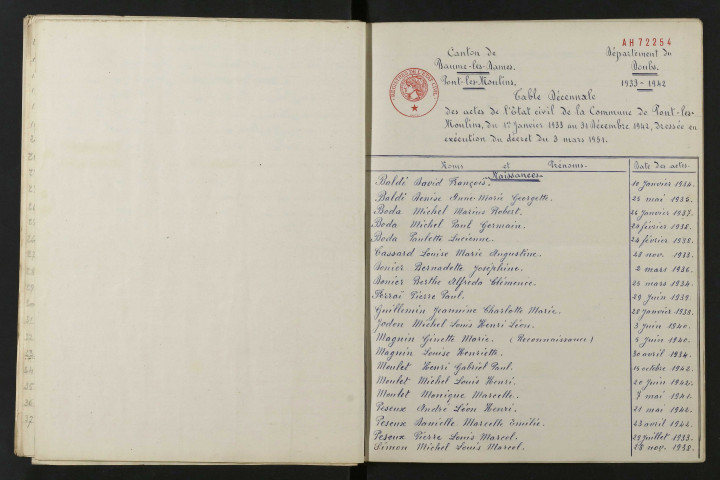 AH 72254
Canton de
Baume-les-Dames.
Pont-les-Moulins.
Département du
Doubs.
1933 - 1942
Table Décennale
des actes de l'Etat civil de la Commune de Pont-les-
Moulins, du 1er Janvier 1933 au 31 Décembre 1942, dressée en
exécution du décret du 3 mars 1951.
Noms et Prénoms Date des actes
Naissances
Baldi David François. 10 Janvier 1934.
Baldi Denise Anne-Marie Georgette. 25 mai 1935.
Boda Michel Marius Robert. 26 Janvier 1937.
Boda Michel Paul Germain. 24 février 1938.
Boda Paulette Lucienne. 24 février 1938.
Cassard Louise Marie Augustine. 28 nov. 1938.
Donier Bernadette Joséphine. 2 mars 1936.
Donier Berthe Alfreda Clémence. 25 mars 1934.
Ferrai Pierre Paul. 29 Juin 1939.
Guillemin Jeannine Charlotte Marie. 28 Janvier 1938.
Jodon Michel Louis Henri Léon. 3 Juin 1940.
Magnin Ginette Marie. (Reconnaissance) 4 Juin 1940.
Magnin Louise Henriette. 30 avril 1934.
Moulet Henri Gabriel Paul. 14 octobre 1942.
Moulet Michel Louis Henri. 20 Juin 1942.
Moulet Monique Marcelle. 7 mai 1941.
Peseux André Léon Henri. 21 mai 1942.
Peseux Danielle Marcelle Emilie. 23 avril 1942.
Peseux Pierre Louis Marcel. 29 Juillet 1933.
Simon Michel Louis Marcel. 28 nov. 1938.